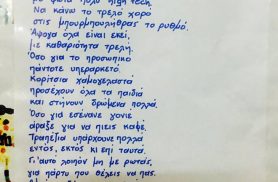 με φώτα πολύ high tech.
Να κάνω το τρελό χορό
στις μπουρμπουλήθρας το ρυθμό.
Άψογα όλα είναι εκεί,
με καθαριότητα τρελή.
Όσο για το προσωπικό
πάντοτε υπεραρκετό.
Κορίτσια χαμογελαστά
προσέχουν όλα τα παιδιά
και στήνουν δρώμενα πολλά.
Όσο για εσένανε γονιέ
άραξε για να πιεις καφέ.
Τραπέζια υπάρχουνε πολλά
εντός, εκτός κι επί ταυτά.
Γι'αυτό λοιπόν μη με ρωτάς,
για πάρτυ που θέλεις να πας.